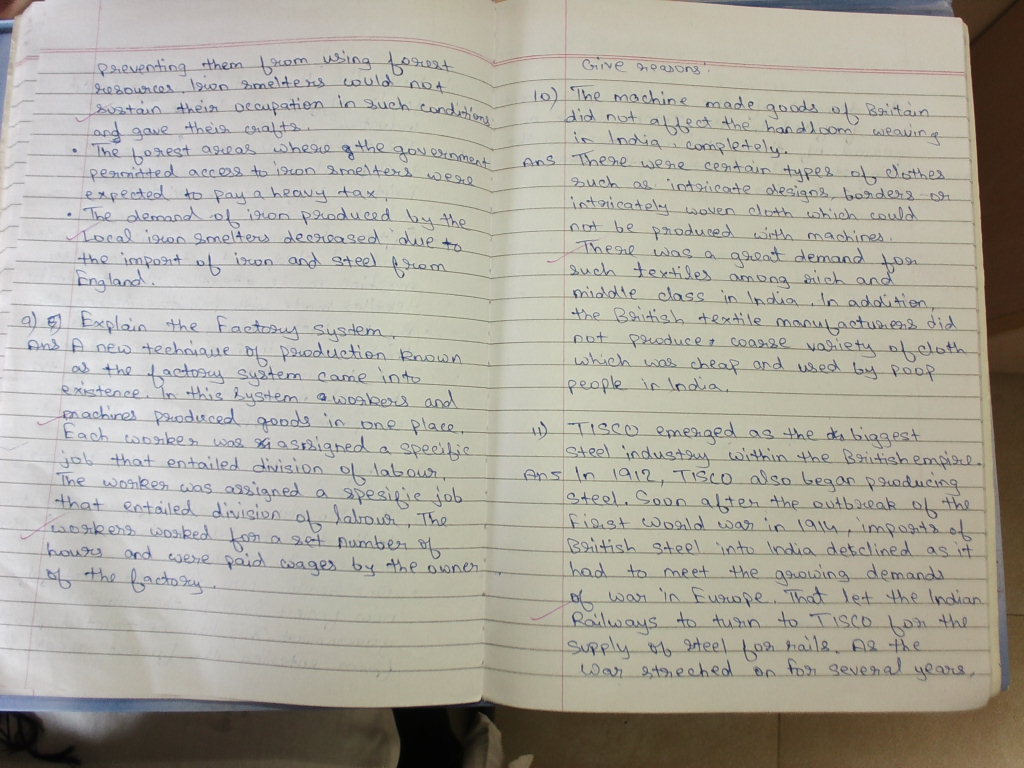 preventing them from using forest
resources. Iron smelters could not
sustain their occupation in such conditions
and gave their crafts.
• The forest areas where the government
permitted access to iron smelters were
expected to pay a heavy tax.
• The demand of iron produced by the
Local iron smelters decreased, due to
the import of iron and steel from
England.
9) Explain the Factory system.
Ans A new technique of production known
as the factory system came into
existence. In this system workers and
machines produced goods in one place.
Each worker was assigned a specific
job that entailed division of labour,
The worker was assigned a spesific job
that entailed division of labour, The
workers worked for a set number of
hours and were paid wages by the owner
of the factory.
Give reasons.
10) The machine made goods of Britain
did not affect the handloom weaving
in India, completely.
Ans There were certain types of clothes
such as intricate designs, borders or
intricately woven cloth which could
not be produced with machines.
There was a great demand for
such textiles among rich and
middle class in India. In addition,
the British textile manufacturers did
not produce coarse variety of cloth
which was cheap and used by poop
people in India.
11) TISCO emerged as the biggest
steel industry within the British empire.
Ans In 1912, TISCO also began producing
steel. Soon after the outbreak of the
First world war in 1914, imports of
British steel into India declined as it
had to meet the growing demands
of war in Europe. That let the Indian
Railways to turn to TISCO for the
supply of steel for rails. As the
war streched on for several years,